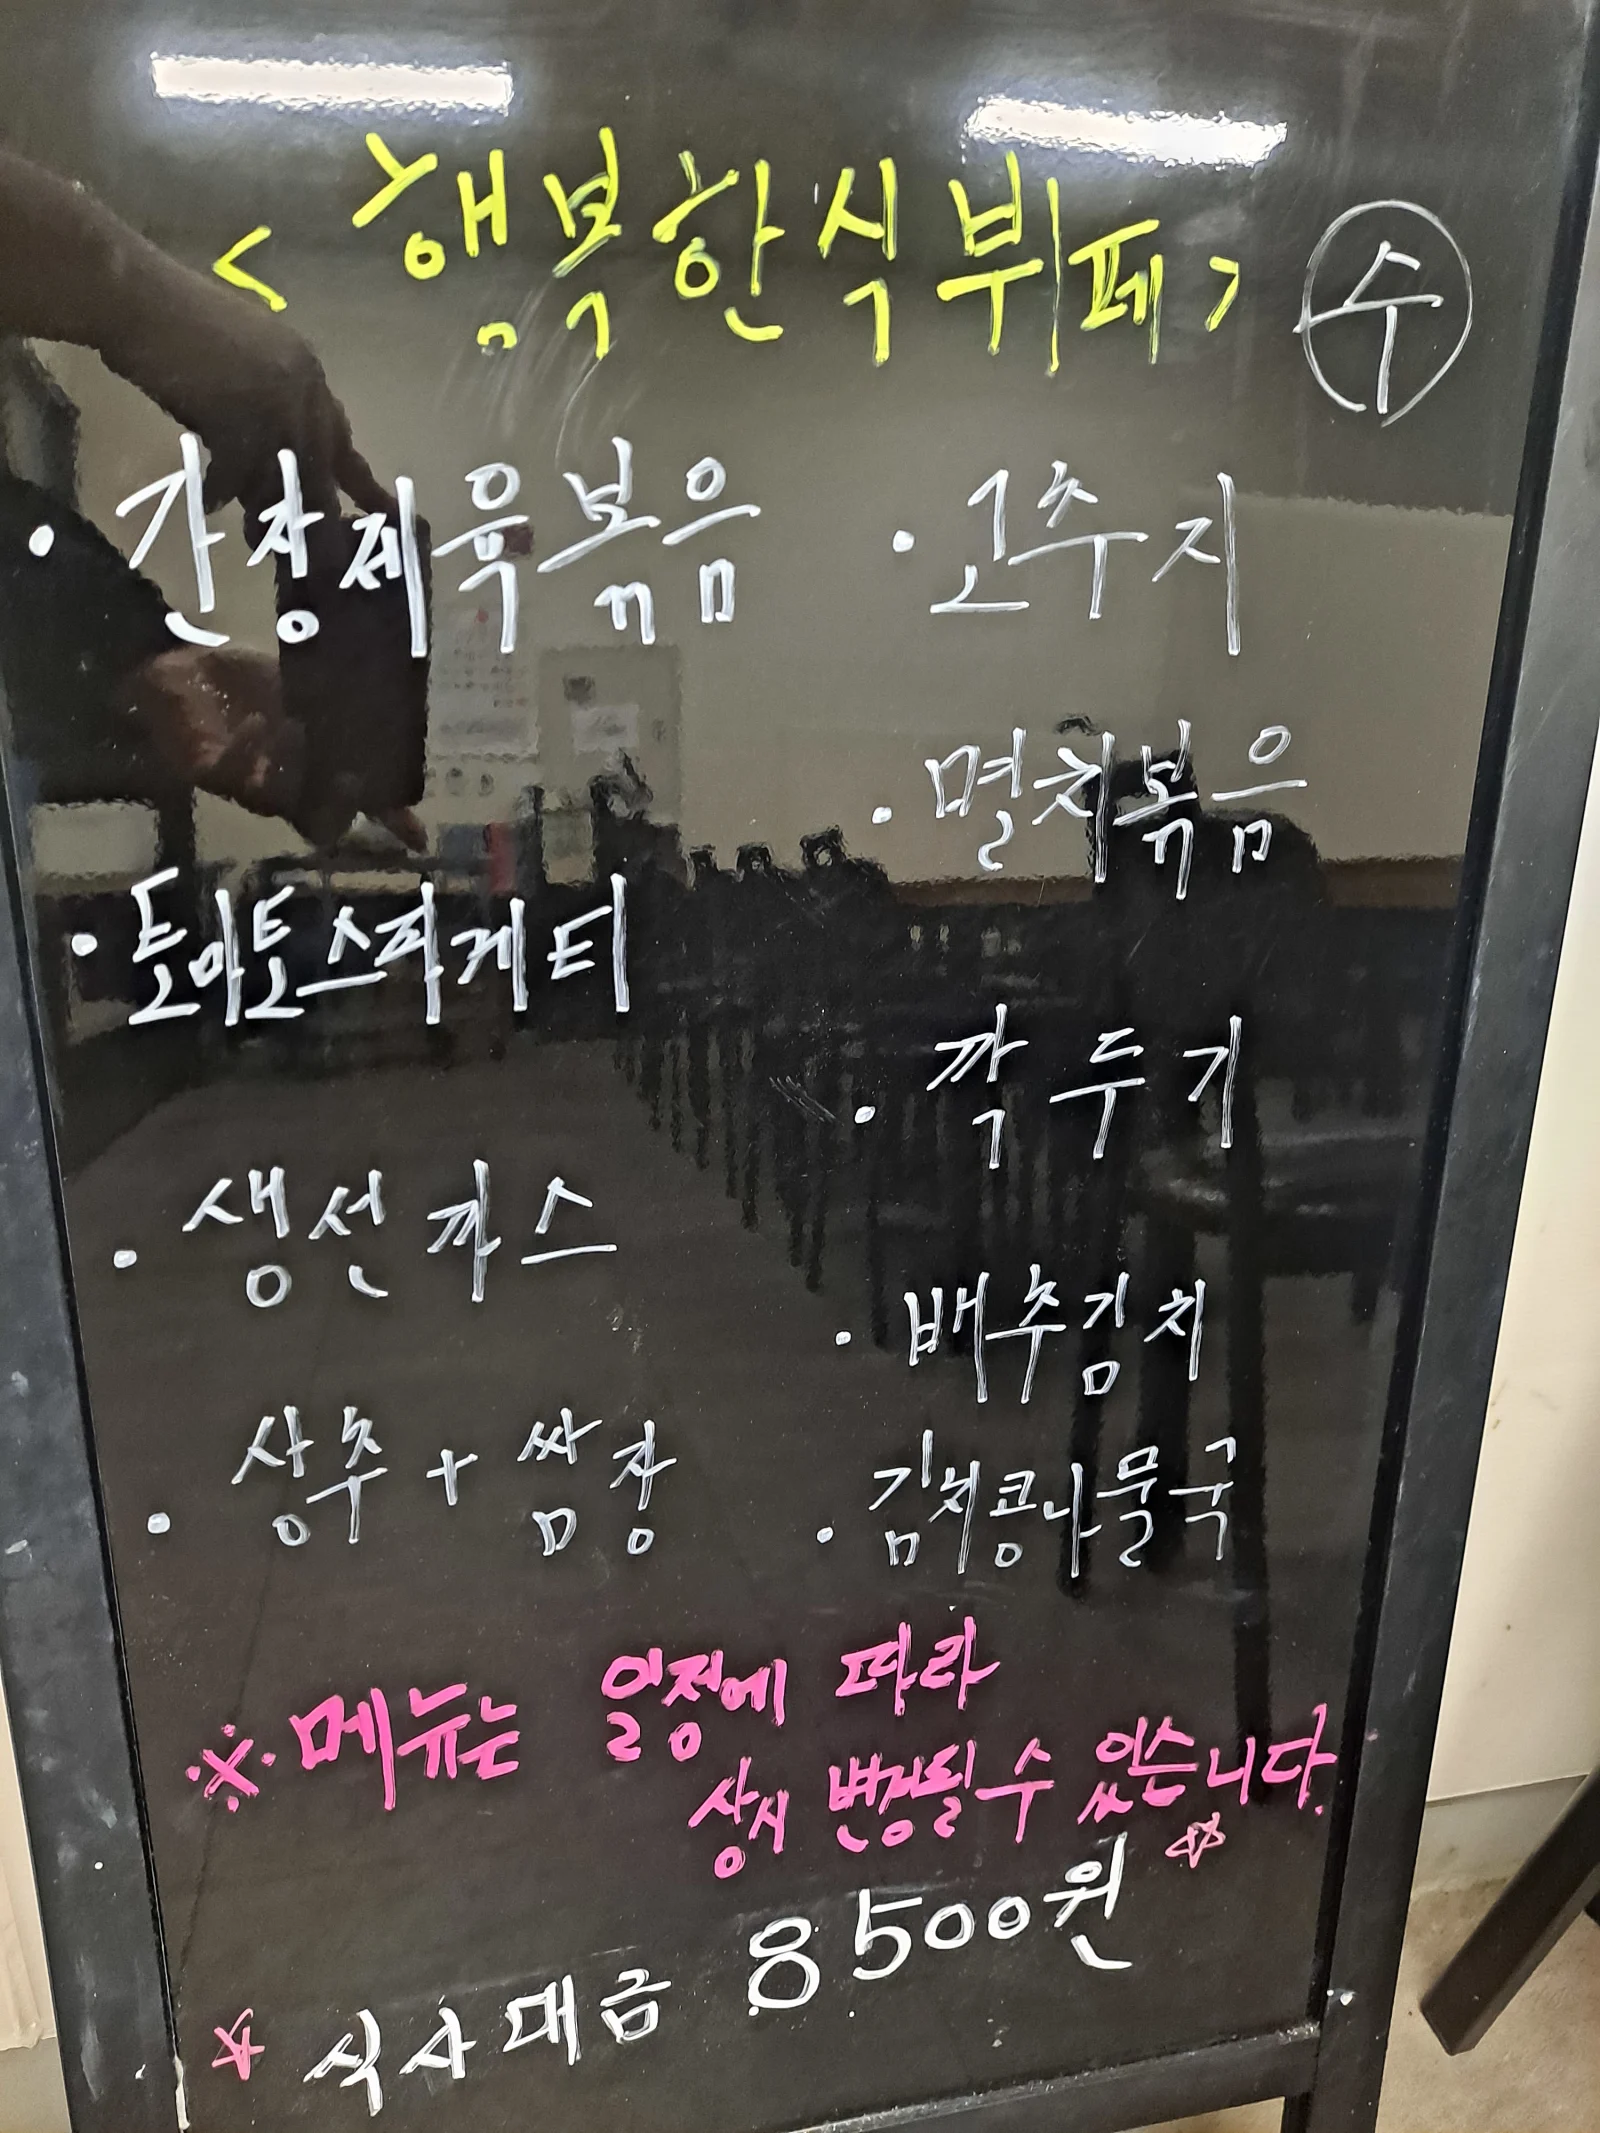 <행복한식뷔페> 수
• 간장제육볶음
• 토마토스파게티
• 생선까스
• 상추+쌈장
• 고추지
• 멸치볶음
• 깍두기
• 배추김치
• 김치콩나물국
※메뉴는 일정에 따라
상시 변경될 수 있습니다.
☆ 식사대금 8500원 ☆